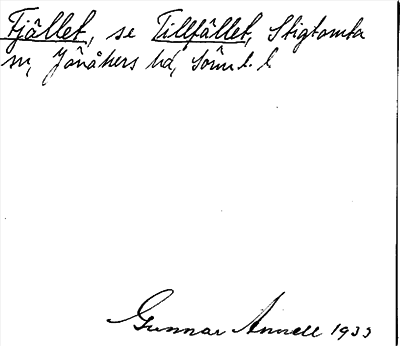 Fjället, se Tillfället, Stigtomta
sn, Jönåkers hd, Sörm. l.
Gunnar Annell 1933